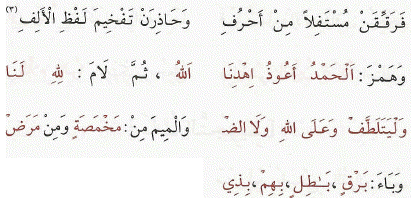 فَرَقِّقَنْ مُسْتَفِلاً مِنْ أَحْرُفِ وَحَاذِرَنْ تَفْخِيمَ لَفْظِ الْأَلِفِ (٣)
وَهَمْزَ: اَلْحَمْدُ أَعُوذُ اِهْدِنَا اَللهُ ، ثُمَّ لَامَ: لِلهِ لَنَا
وَلْيَتَلَطَّفْ وَعَلَى اللهِ وَلَا الضْ وَالْمِيمَ مِنْ: مَخْمَصَةٍ وَمِنْ مَرَضْ
وَبَاءَ: بَرْقٍ، بَـٰطِلٍ، بِهِمْ، بِذِي